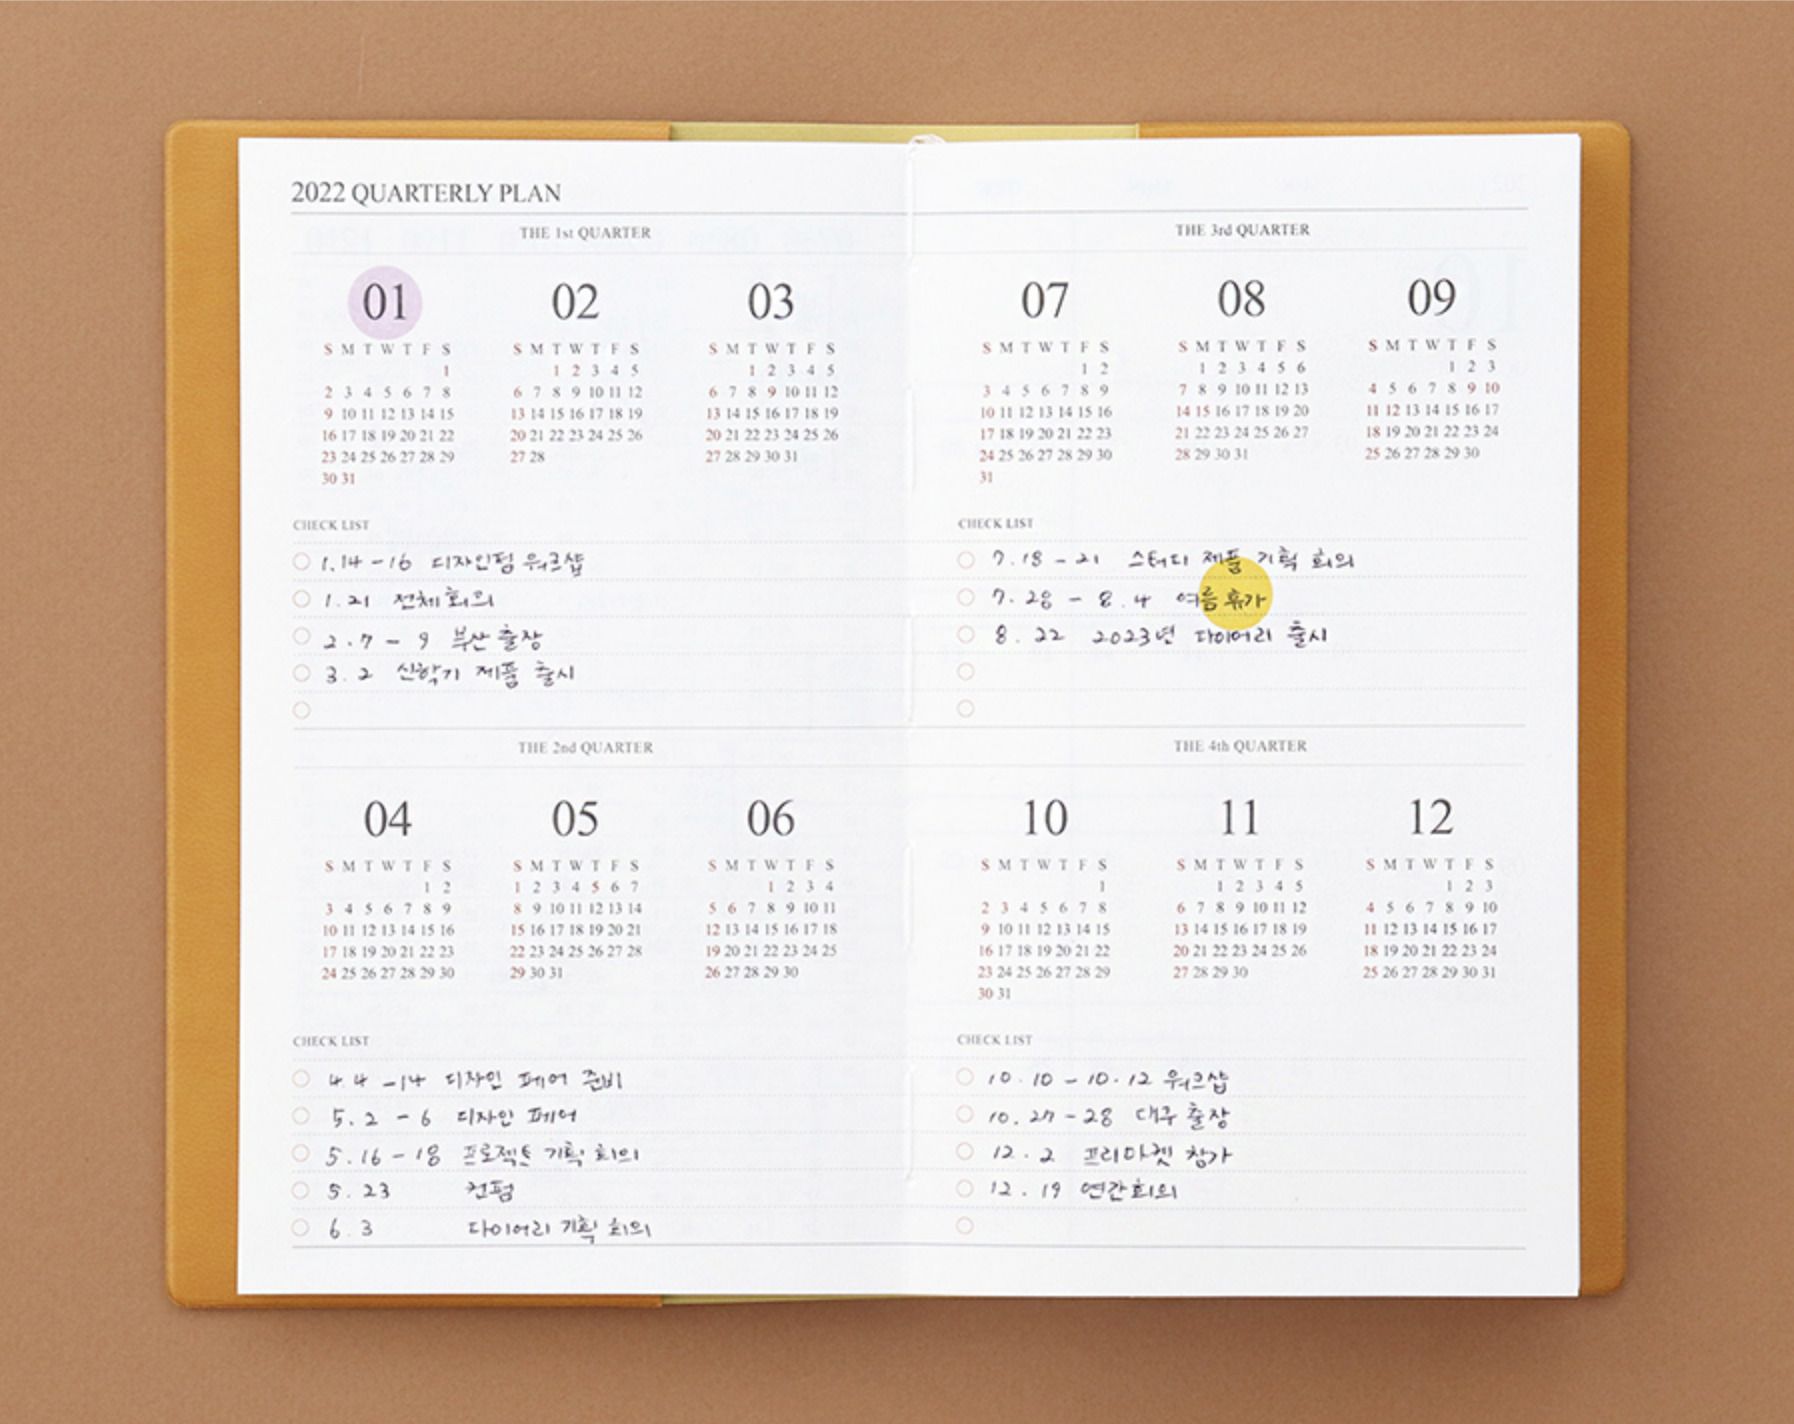 2022 QUARTERLY PLAN
THE 1st QUARTER
01 02 03
S M T W T F S S M T W T F S S M T W T F S
1 1 2 3 4 5 1 2 3 4 5
2 3 4 5 6 7 8 6 7 8 9 10 11 12 6 7 8 9 10 11 12
9 10 11 12 13 14 15 13 14 15 16 17 18 19 13 14 15 16 17 18 19
16 17 18 19 20 21 22 20 21 22 23 24 25 26 20 21 22 23 24 25 26
23 24 25 26 27 28 29 27 28 27 28 29 30 31
30 31
CHECK LIST
1.14 - 16 디자인팀 워크샵
1.21 전체회의
2.7 - 9 부산 출장
3.2 신학기 제품 출시
THE 2nd QUARTER
04 05 06
S M T W T F S S M T W T F S S M T W T F S
1 2 1 2 3 4 5 6 7 1 2 3 4
3 4 5 6 7 8 9 8 9 10 11 12 13 14 5 6 7 8 9 10 11
10 11 12 13 14 15 16 15 16 17 18 19 20 21 12 13 14 15 16 17 18
17 18 19 20 21 22 23 22 23 24 25 26 27 28 19 20 21 22 23 24 25
24 25 26 27 28 29 30 29 30 31 26 27 28 29 30
CHECK LIST
4.4 - 14 디자인 페어 준비
5.2 - 6 디자인 페어
5.16 - 18 프로젝트 기획 회의
5.23 컨펌
6.3 다이어리 기획 회의
THE 3rd QUARTER
07 08 09
S M T W T F S S M T W T F S S M T W T F S
1 2 1 2 3 4 5 6 1 2 3
3 4 5 6 7 8 9 7 8 9 10 11 12 13 4 5 6 7 8 9 10
10 11 12 13 14 15 16 14 15 16 17 18 19 20 11 12 13 14 15 16 17
17 18 19 20 21 22 23 21 22 23 24 25 26 27 18 19 20 21 22 23 24
24 25 26 27 28 29 30 28 29 30 31 25 26 27 28 29 30
31
CHECK LIST
7.18 - 21 스터디 제품 기획 회의
7.28 - 8.4 여름 휴가
8.22 2023년 다이어리 출시
THE 4th QUARTER
10 11 12
S M T W T F S S M T W T F S S M T W T F S
1 1 2 3 4 5 1 2 3
2 3 4 5 6 7 8 6 7 8 9 10 11 12 4 5 6 7 8 9 10
9 10 11 12 13 14 15 13 14 15 16 17 18 19 11 12 13 14 15 16 17
16 17 18 19 20 21 22 20 21 22 23 24 25 26 18 19 20 21 22 23 24
23 24 25 26 27 28 29 27 28 29 30 25 26 27 28 29 30 31
30 31
CHECK LIST
10.10 - 10.12 워크샵
10.27 - 28 대구 출장
12.2 프리마켓 참가
12.19 연간회의